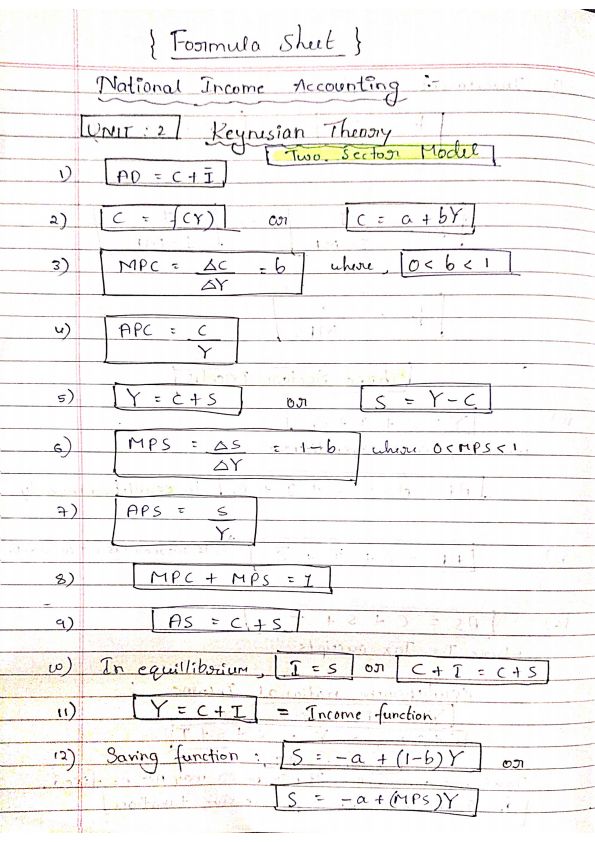 { Formula Sheet }
National Income Accounting :-
UNIT : 2 Keynesian Theory
Two. Sector Model
1) AD = C + Ī
2) C = f(Y) or C = a + bY
3) MPC = ΔC/ΔY = b where, 0 < b < 1
4) APC = C/Y
5) Y = C + S or S = Y - C
6) MPS = ΔS/ΔY = 1 - b where 0 < MPS < 1
7) APS = S/Y
8) MPC + MPS = 1
9) AS = C + S
10) In equillibrium, I = S or C + I = C + S
11) Y = C + I = Income function
12) Saving function :, S = -a + (1-b)Y or
S = -a + (MPS)Y